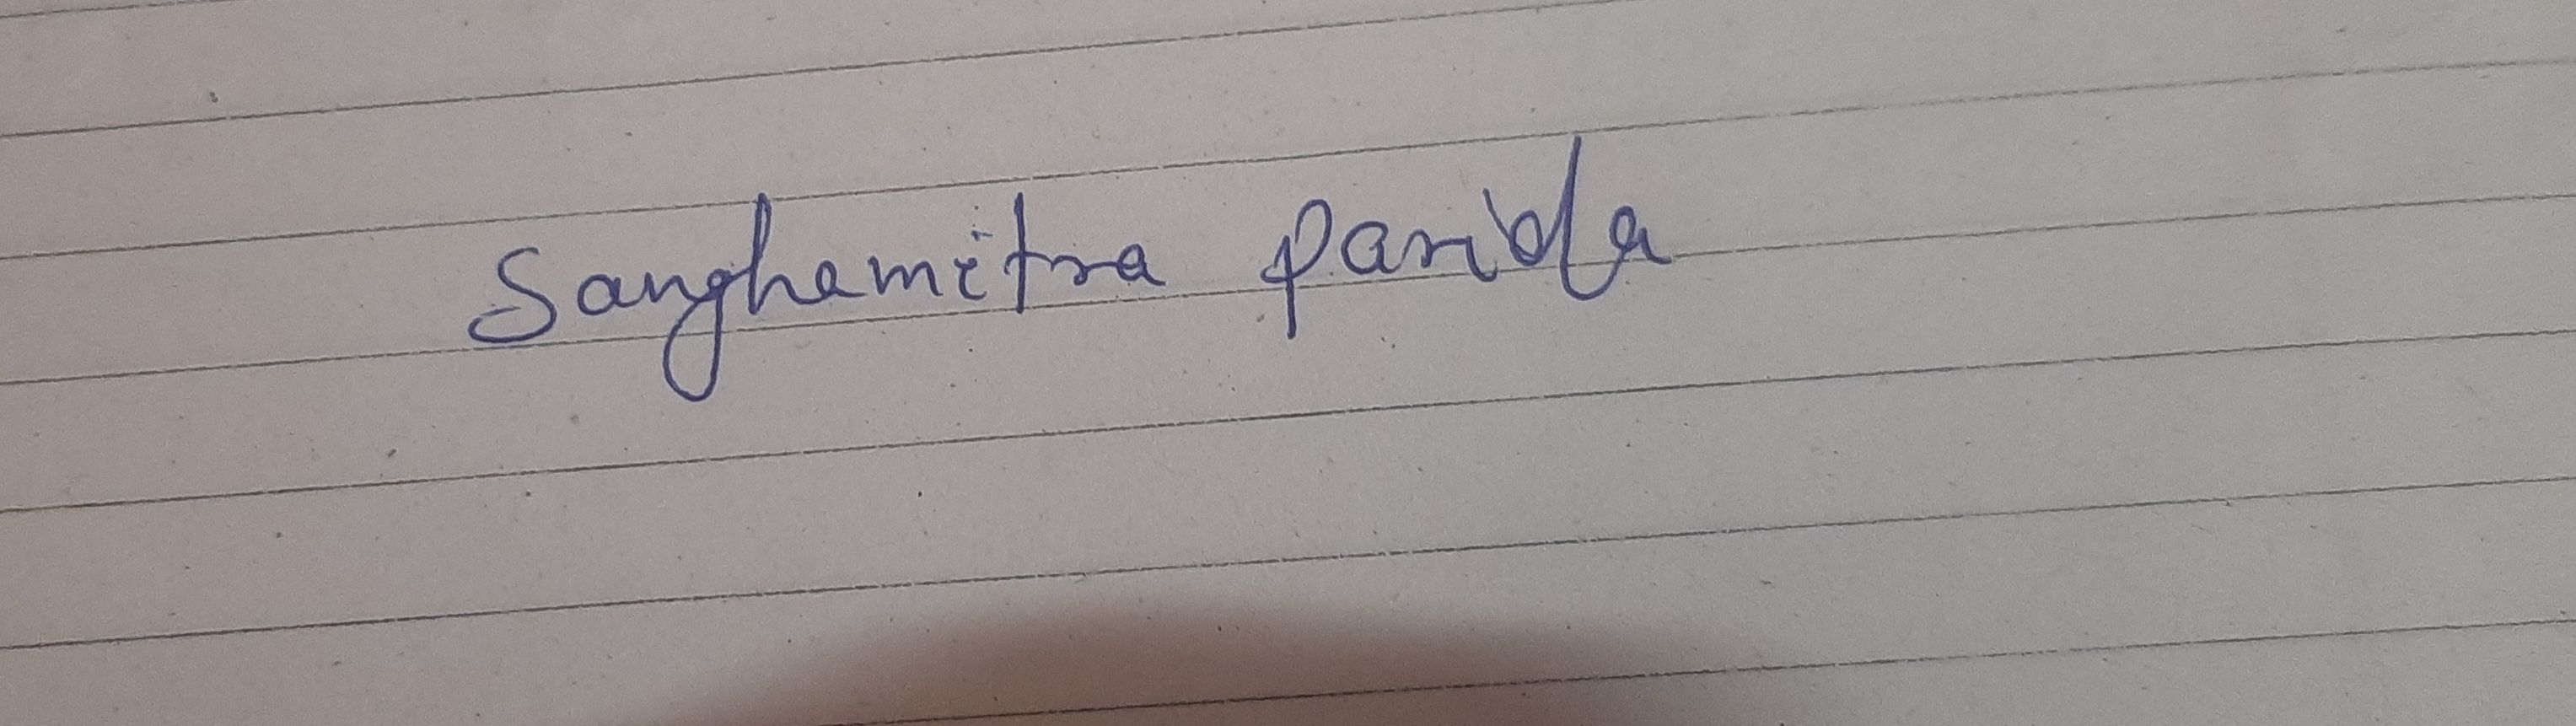 Sanghamitra Parida